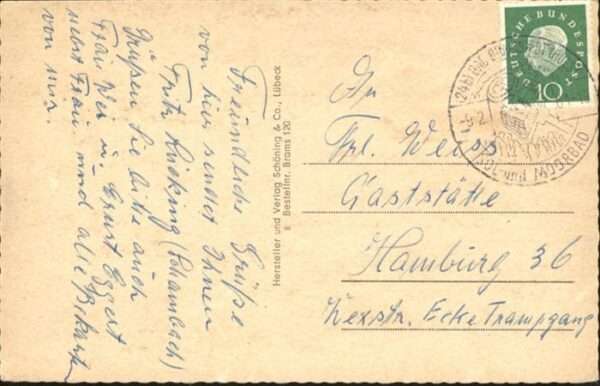 Freundliche Grüße
von hier sendet Ihnen
Fritz
Grüßen Sie bitte auch
Frau u. Ernst Eggert
nebst Frau und alle
von mir.
Hersteller und Verlag Schöning & Co., Lübeck
Bestellnr. Brams 120
DEUTSCHE BUNDESPOST
10
(24b)
MOORBAD
An
Frl. Weiss
Gaststätte
Hamburg 36
Ecke Trampgang